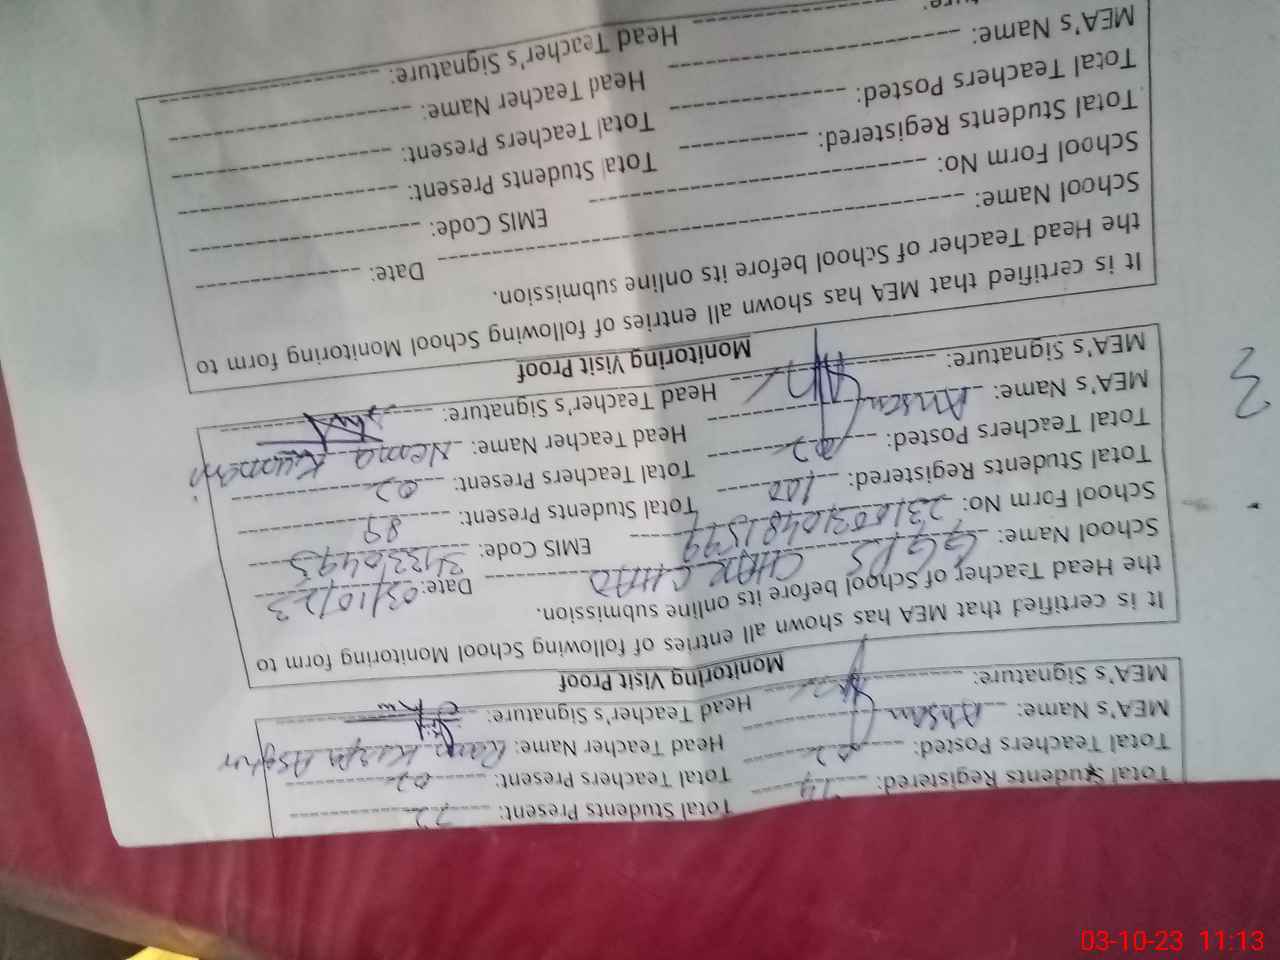 Total Students Registered: 74 Total Students Present: 72
Total Teachers Posted: 02 Total Teachers Present: 02
MEA's Name: Ahsan Head Teacher Name:
MEA's Signature: Head Teacher's Signature:
Monitoring Visit Proof
It is certified that MEA has shown all entries of following School Monitoring form to
the Head Teacher of School before its online submission.
School Name: GGPS CHAR CHAD Date: 03/10/23
School Form No: EMIS Code:
Total Students Registered: 100 Total Students Present: 89
Total Teachers Posted: 02 Total Teachers Present: 02
MEA's Name: Ahsan Head Teacher Name: Kumari
MEA's Signature: Head Teacher's Signature:
Monitoring Visit Proof
It is certified that MEA has shown all entries of following School Monitoring form to
the Head Teacher of School before its online submission.
School Name: Date:
School Form No: EMIS Code:
Total Students Registered: Total Students Present:
Total Teachers Posted: Total Teachers Present:
MEA's Name: Head Teacher Name:
Head Teacher's Signature:
3
03-10-23 11:13